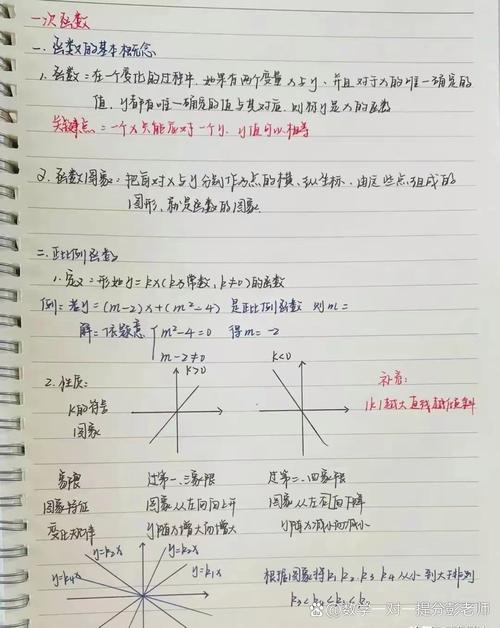 一次函数
一、函数的基本概念
1、函数:在一个变化的过程中,如果有两个变量x与y,并且对于x的唯一确定的
值,y都有唯一确定的值与其对应,则称y是x的函数
关键点:一个x只能应对于一个y,y值可以相等
2、函数图象:把每对x与y分别作为点的横、纵坐标,由这些点组成的
图形,就是函数的图象
二、正比例函数
1、定义:形如y=kx(k为常数,k≠0)的函数
例:若y=(m-2)x+(m²-4)是正比例函数 则m=
解:依题意 { m²-4=0 得m=-2
m-2≠0
2、性质:
k的符号 k>0 k<0
图象
补充:
|k|越大直线越倾斜
象限 过第一、三象限 过第二、四象限
图象特征 图象从左向向上升 图象从左到向下降
变化规律 y随x增大而增大 y随x减小而减小
y=k₃x y=k₂x
y=k₄x y=k₁x
根据图象将k₁、k₂、k₃、k₄从小到大排列
k₃<k₄<k₁<k₂
数学一对一提分彭老师